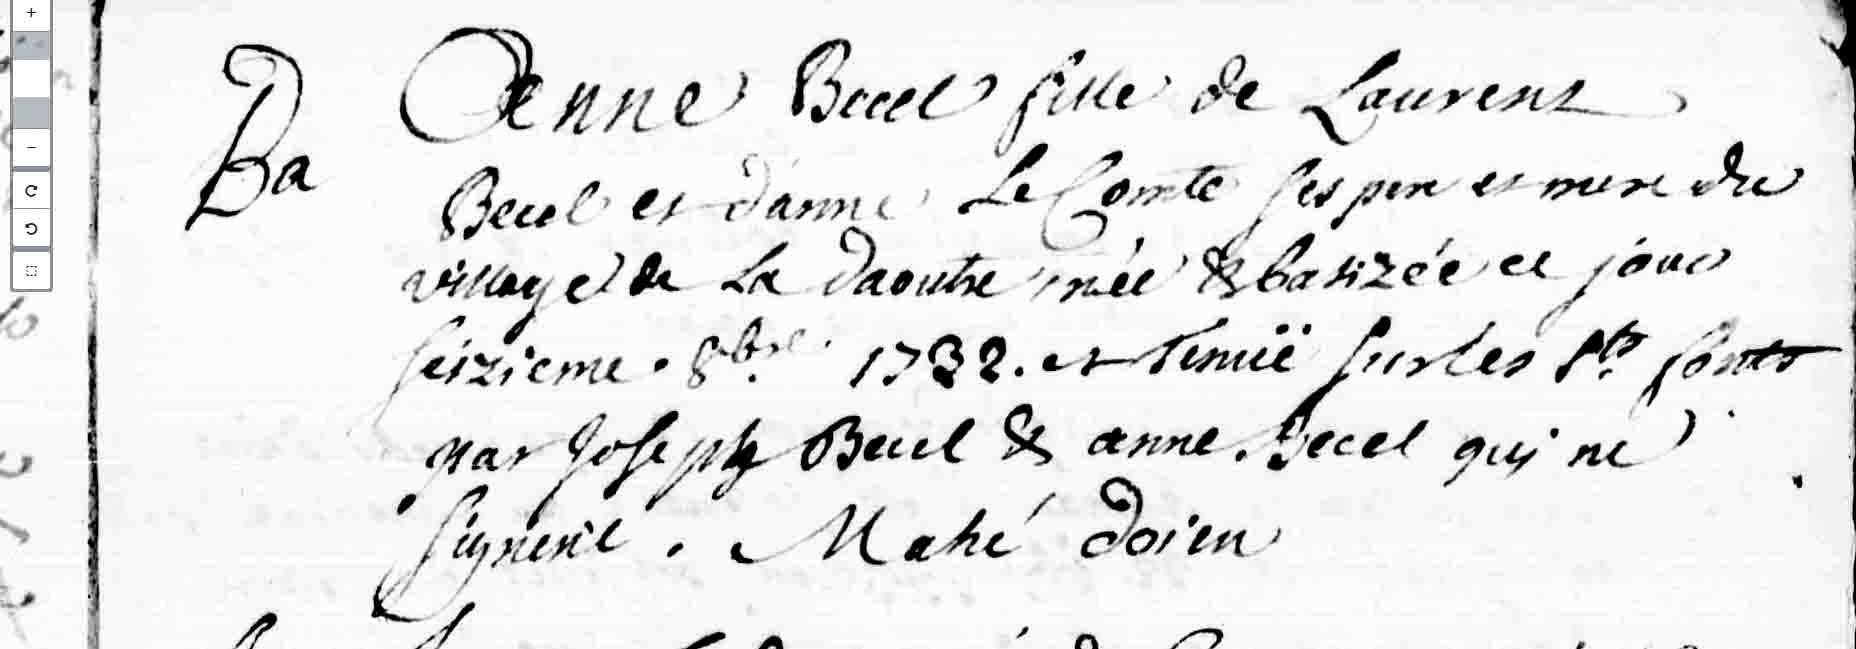 Ba
anne Becel fille de Laurent
Becel et d'anne Le Comte ses pere et mere du
village de La daoutre née & batizée ce jour
seizieme . 8bre 1732. et tenuë sur les Sts fonts
par Joseph Becel & anne Becel qui ne
signent . Mahé doien